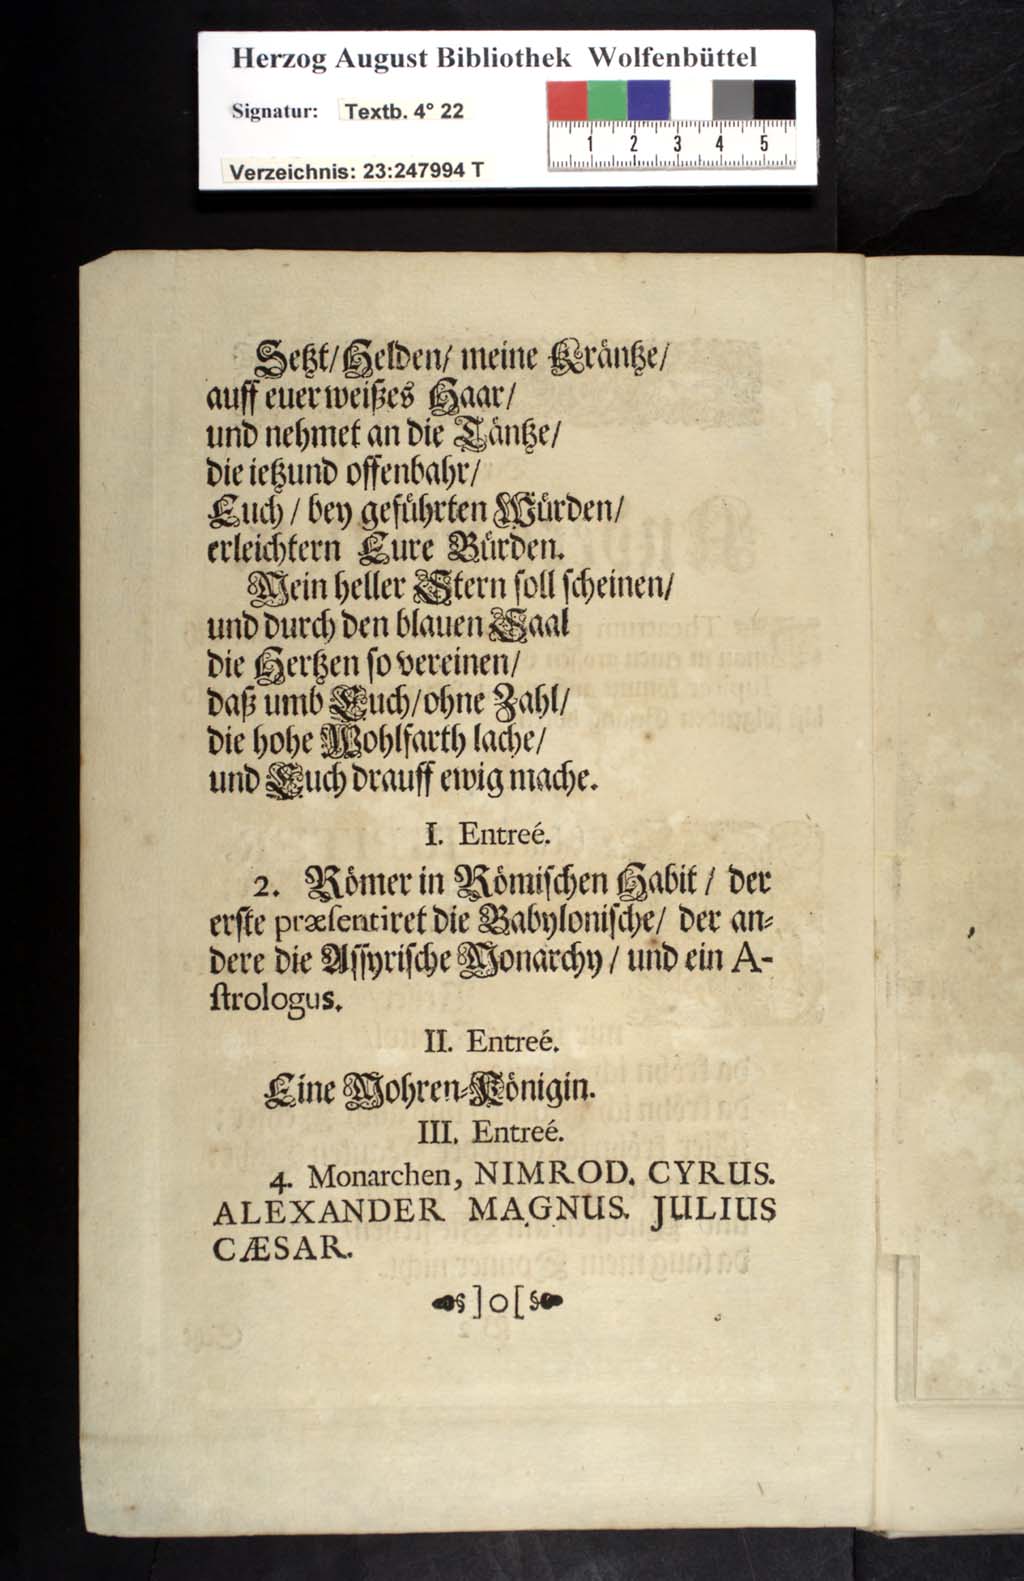 Herzog August Bibliothek Wolfenbüttel
Signatur: Textb. 4° 22
1 2 3 4 5
Verzeichnis: 23:247994 T
Setzt/ Helden/ meine Kräntze/
auff euer weißes Haar/
und nehmet an die Täntze/
die ietzund offenbahr/
Euch / bey geführten Würden/
erleichtern Eure Bürden.
Mein heller Stern soll scheinen/
und durch den blauen Saal
die Hertzen so vereinen/
daß umb Euch/ ohne Zahl/
die hohe Wohlfarth lache/
und Euch drauff ewig mache.
I. Entreé.
2. Römer in Römischen Habit / der
erste præsentiret die Babylonische/ der an-
dere die Assyrische Monarchy / und ein A-
strologus.
II. Entreé.
Eine Mohren-Königin.
III. Entreé.
4. Monarchen, NIMROD. CYRUS.
ALEXANDER MAGNUS. JULIUS
CÆSAR.
§ ] o [ §